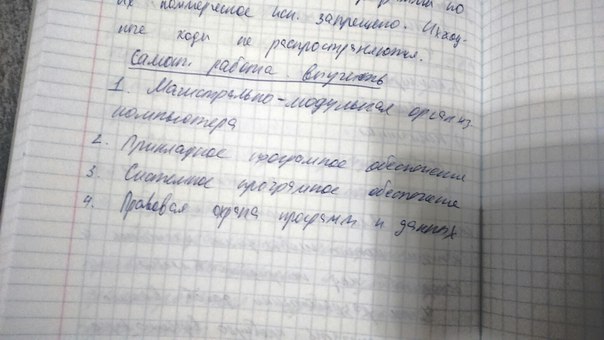 их коммерческое исп. запрещено. Исход-
ные коды не распространяются.
Самост. работа. Выучить
1. Магистрально-модульная организ
компьютера
2. Прикладное программное обеспечение
3. Системное программное обеспечение
4. Правовая охрана программ и данных